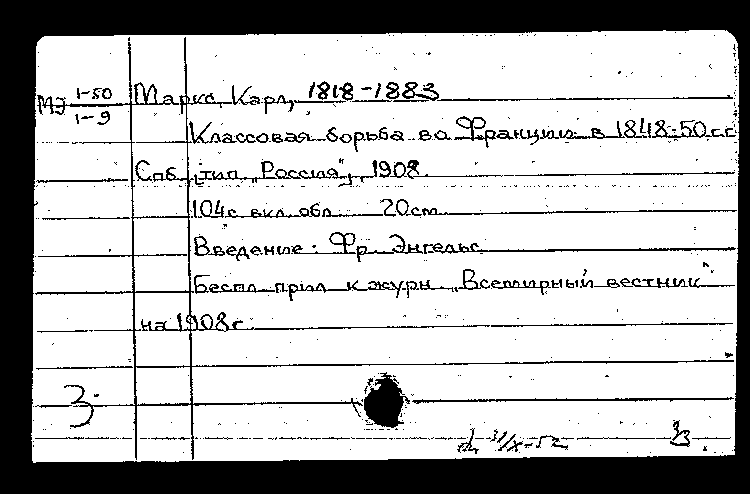 МЭ 1-50 Маркс, Карл, 1818-1883
1-9
Классовая борьба во Франции в 1848-50гг
Спб, тип „Россия", 1908.
104с вкл. обл. 20см
Введение: Фр. Энгельс.
Беспл. прил. к журн. „Всемирный вестник"
на 1908г.
3
31/X-52